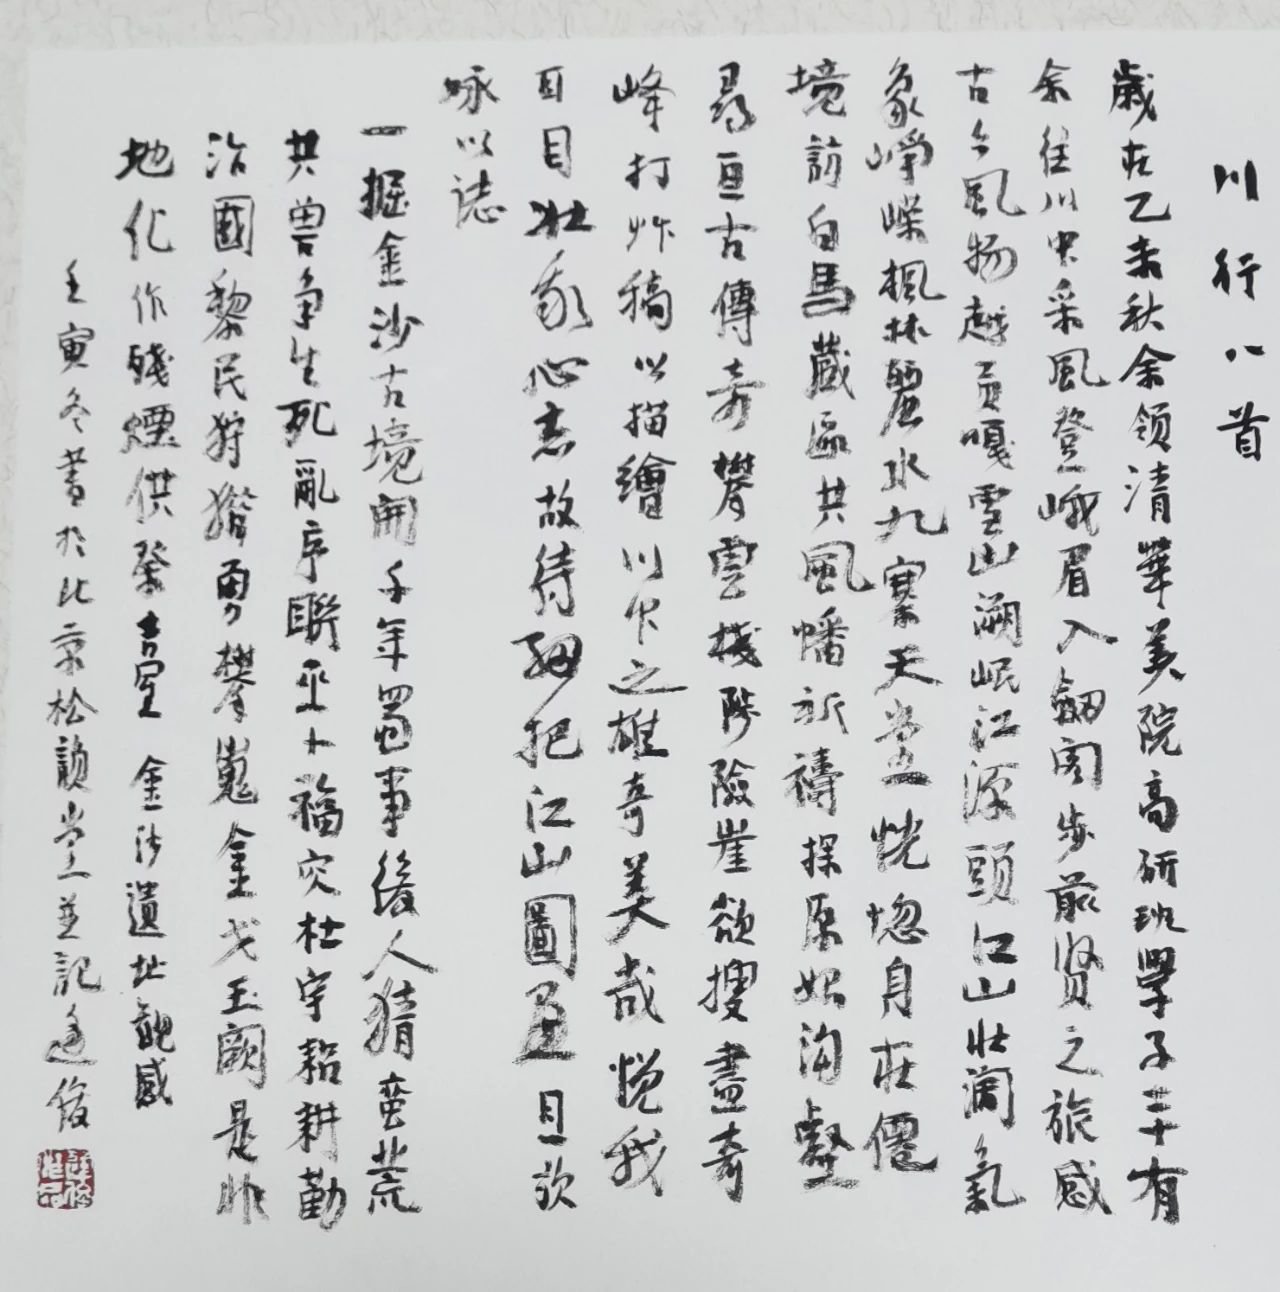 川行八首
歲在乙未秋余領清華美院高研班學子三十有
余往川中采風登峨眉入劍閣步前賢之旅感
古今風物越貢嘎雪山溯岷江源頭江山壯闊氣
象崢嶸楓林麗水九寨天堂恍惚身在僊
境訪白馬藏區共風幡祈禱探原始溝壑
尋亘古傳奇攀雲棧陟險崖欲搜盡奇
峰打草稿以描繪川中之雄奇美哉悅我
耳目壯我心志故待细把江山圖畫且歌
咏以誌
一掘金沙古境開千年蜀事後人猜蛮荒
共獸争生死亂序聯巫卜福灾杜宇耜耕勤
治國黎民狩獵勇攀嵬金戈玉闕是非
地化作殘煙供祭臺 金沙遺址觀感
壬寅冬書於北京松韻堂並記逢俊